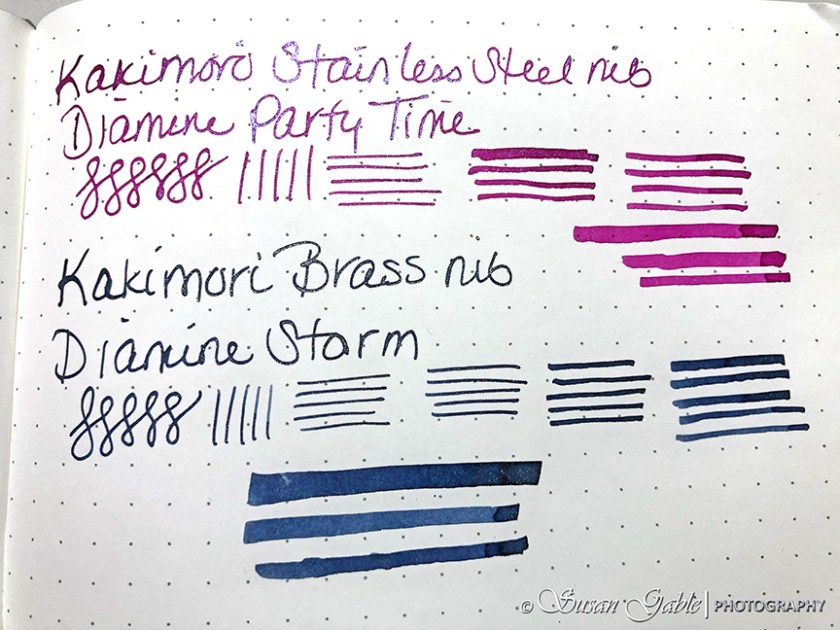 Kakimori Stainless Steel nib
Diamine Party Time
Kakimori Brass nib
Diamine Storm
© Susan Gable | PHOTOGRAPHY